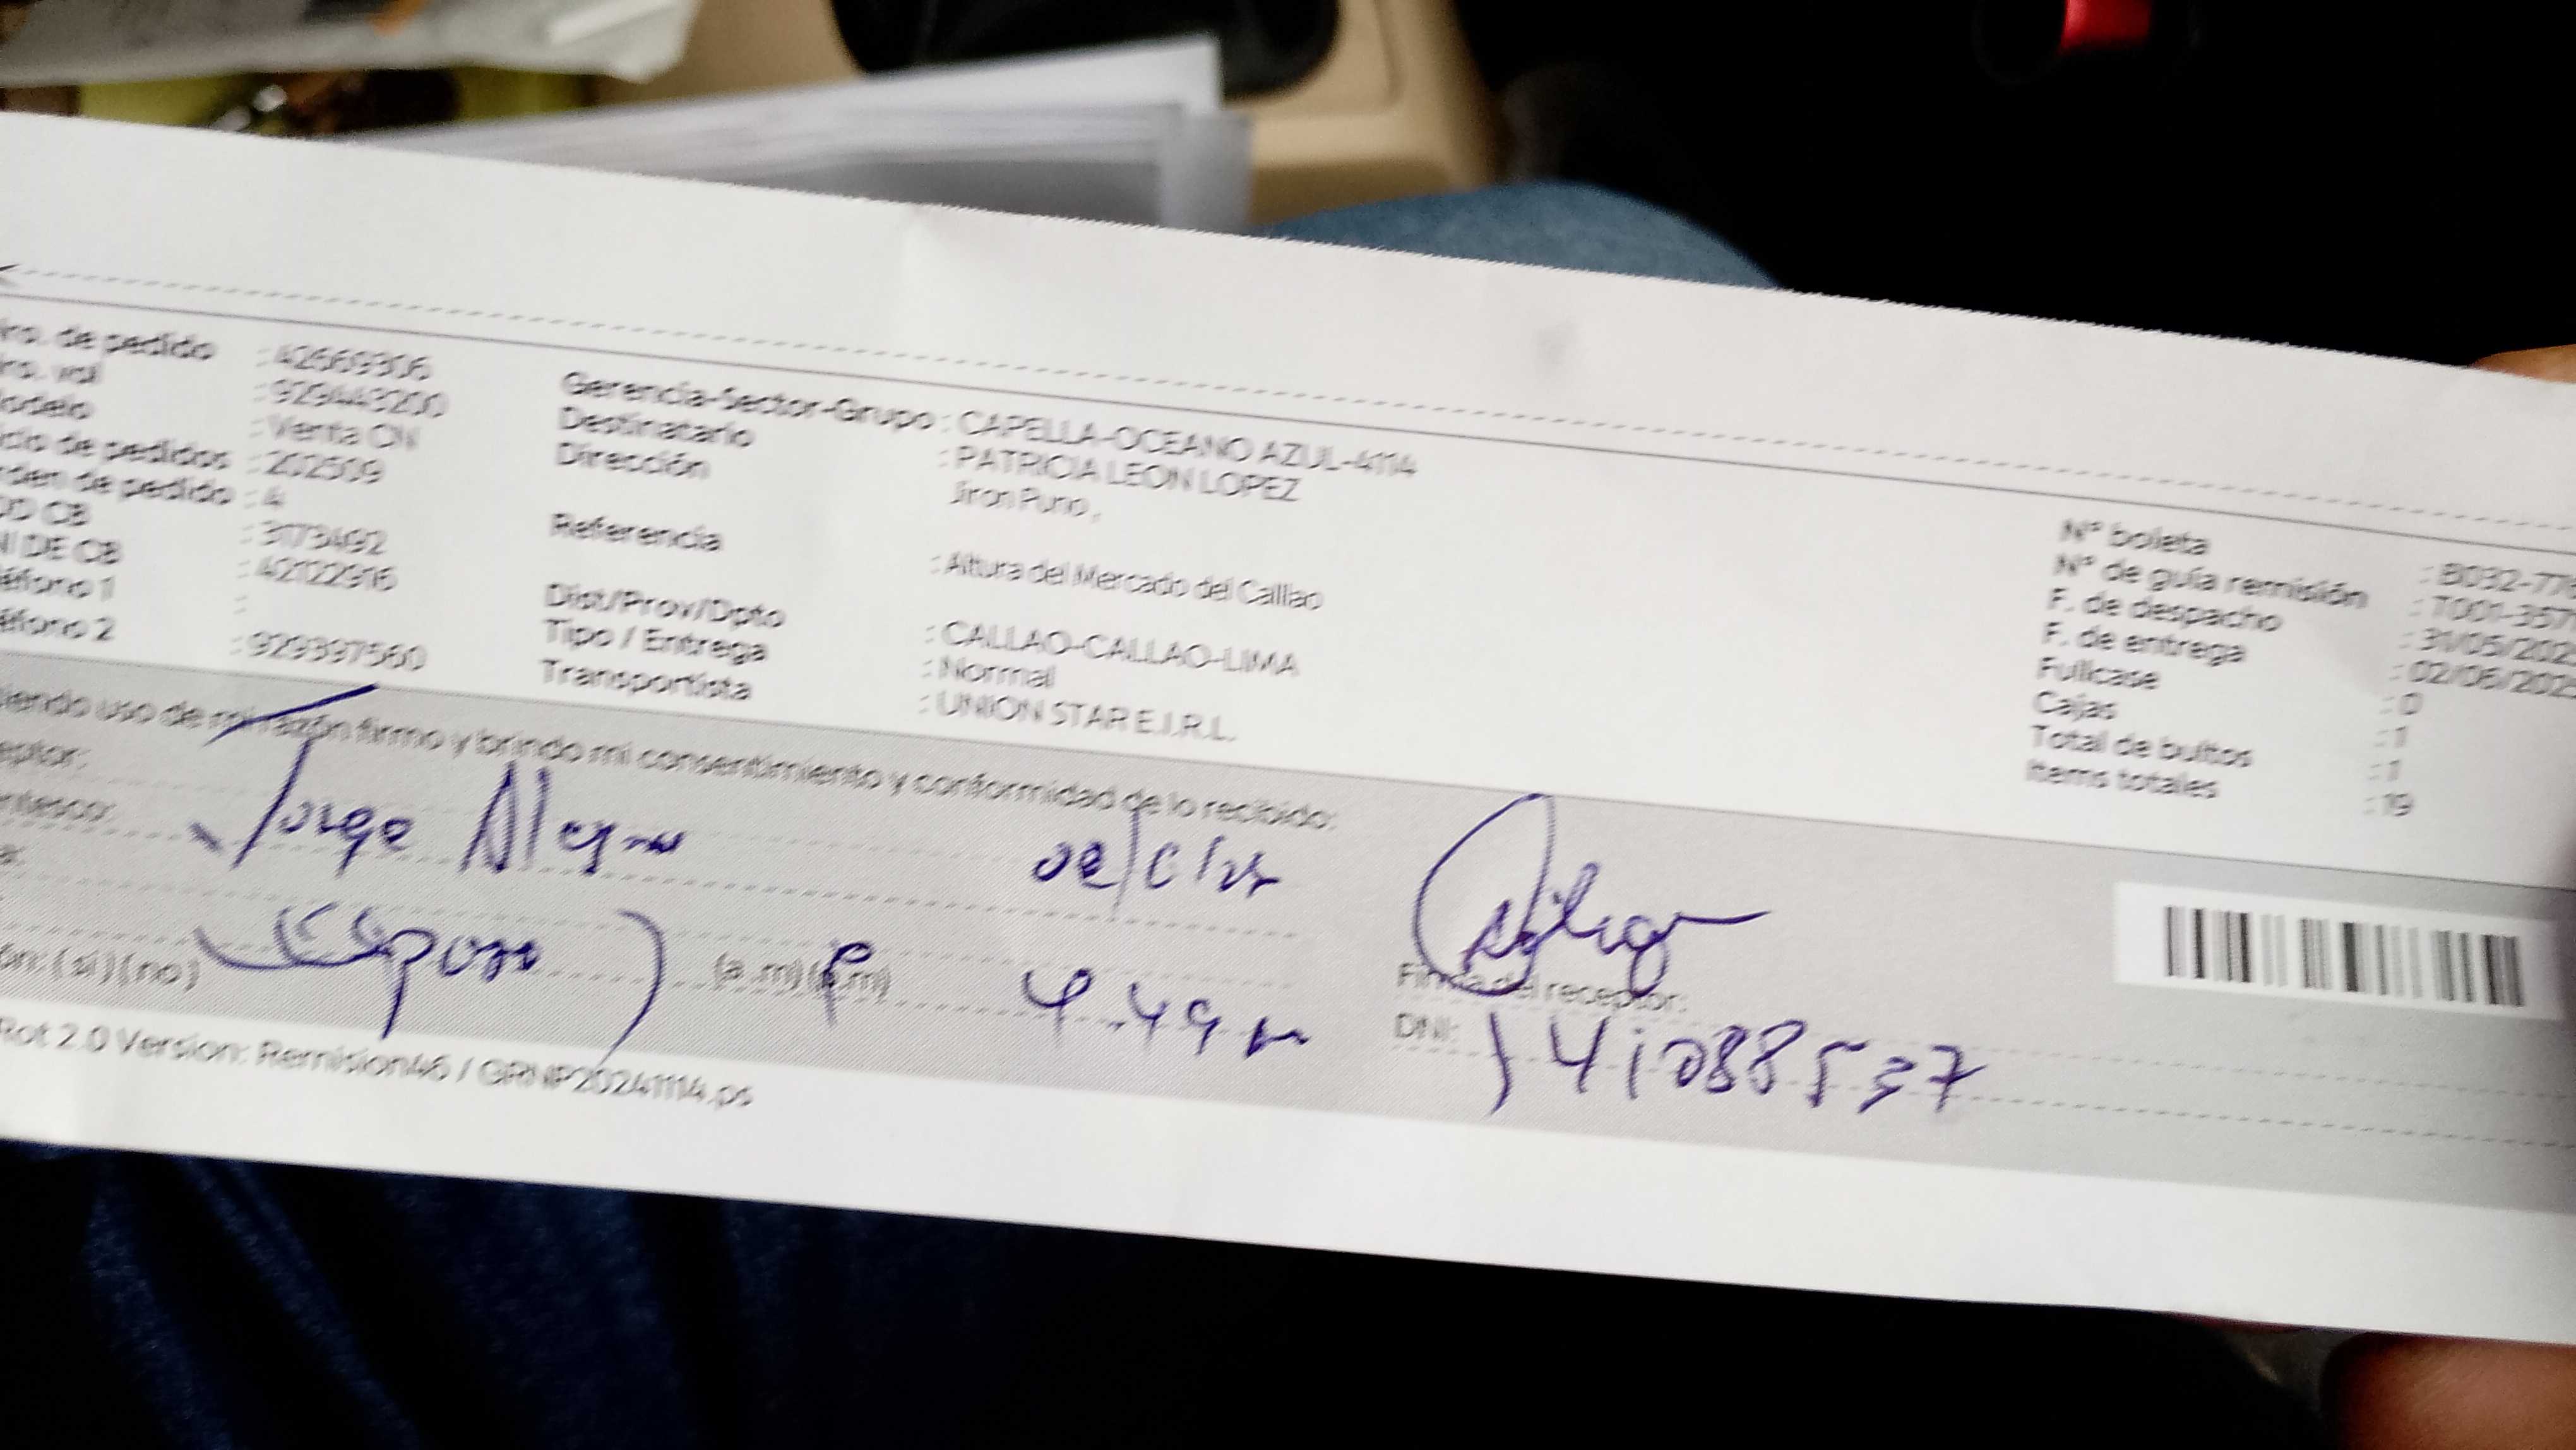 ro. de pedido : 42669306
ro. vol : 929443200
odelo : Venta CN
clo de pedidos : 202509
rden de pedido : 4
OD CB : 3173492
NI DE CB : 42122916
éfono 1 :
éfono 2 : 929397560
Gerencia-Sector-Grupo : CAPELLA-OCEANO AZUL-4114
Destinatario : PATRICIA LEON LOPEZ
Dirección Jiron Puno ,
Referencia : Altura del Mercado del Calllao
Dist/Prov/Dpto : CALLAO-CALLAO-LIMA
Tipo / Entrega : Normal
Transportista : UNION STAR E.I.R.L.
N° boleta : B032-776
N° de guía remisión : T001-357
F. de despacho : 31/05/202
F. de entrega : 02/06/202
Fullcase : 0
Cajas : 1
Total de bultos : 1
Items totales : 19
iendo uso de mi razón firmo y brindo mi consentimiento y conformidad de lo recibido:
eptor: Jorge
entesco:
a:
(Esposo)
ón: ( si ) ( no ) (a .m) (p.m)
Firma del receptor:
DNI:
Rot 2.0 Version: Remision46 / GRNP20241114.ps